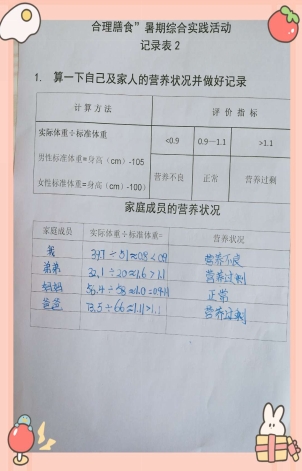 合理膳食”暑期综合实践活动
记录表2
1. 算一下自己及家人的营养状况并做好记录
计算方法 评价指标
实际体重÷标准体重 <0.9 0.9—1.1 >1.1
男性标准体重=身高（cm）-105
女性标准体重=身高（cm）-100） 营养不良 正常 营养过剩
家庭成员的营养状况
家庭成员 实际体重÷标准体重= 营养状况
我 营养不良
弟弟 32.1÷20≈1.6>1.1 营养过剩
妈妈 正常
爸爸 73.5÷66≈1.11>1.1 营养过剩